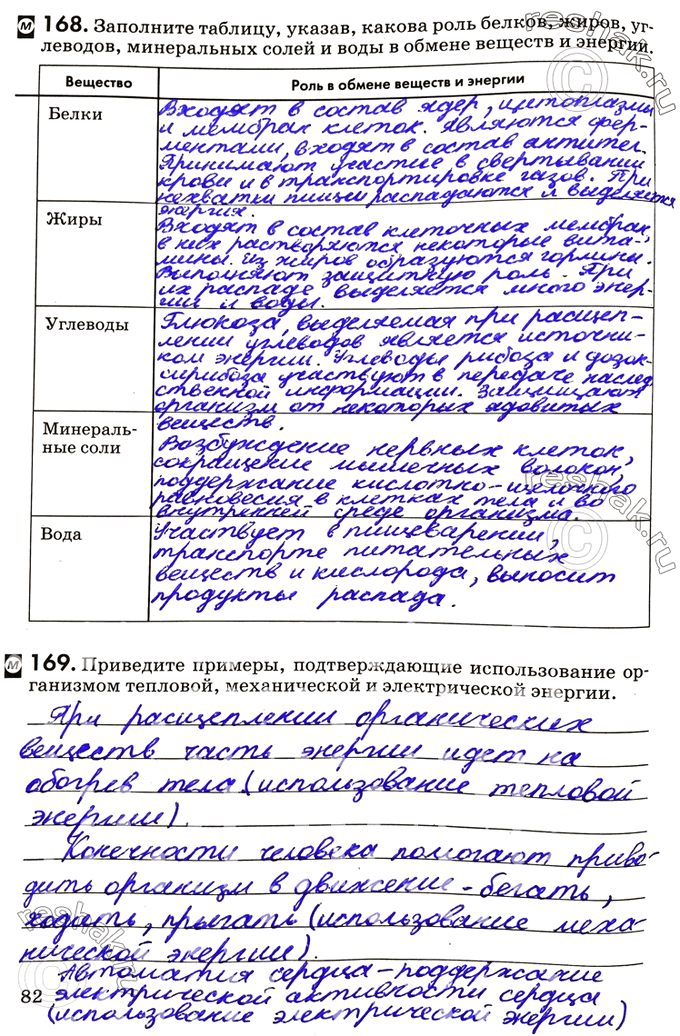 М 168. Заполните таблицу, указав, какова роль белков, жиров, уг-
леводов, минеральных солей и воды в обмене веществ и энергии.
Вещество
Роль в обмене веществ и энергии
Белки
Входят в состав ядер, цитоплазмы
и мембран клеток. Являются фер-
ментами, входят в состав антител.
Принимают участие в свертывании
крови и в транспортировке газов. При
нехватки пищи распадаются и выделяется
энергия.
Жиры
Входят в состав клеточных мембран,
в них растворяются некоторые вита-
мины. Из жиров образуются гормоны.
Выполняют защитную роль. При
их распаде выделяется много энер-
гии и воды.
Углеводы
Глюкоза, выделяемая при расщеп-
лении углеводов является источни-
ком энергии. Углеводы рибоза и дезок-
сирибоза участвуют в передаче наслед
ственной информации. Защищают
организм от некоторых ядовитых
веществ.
Минераль-
ные соли
Возбуждение нервных клеток,
сокращение мышечных волокон,
поддержание кислотно-щелочного
равновесия в клетках тела и во
внутренней среде организма.
Вода
Участвует в пищеварении,
транспорте питательных
веществ и кислорода, выносит
продукты распада.
М 169. Приведите примеры, подтверждающие использование ор-
ганизмом тепловой, механической и электрической энергии.
При расщеплении органических
веществ часть энергии идет на
обогрев тела (использование тепловой
энергии).
Конечности человека помогают приво-
дить организм в движение - бегать,
ходить, прыгать (использование меха-
нической энергии).
Автоматия сердца - поддержание
электрической активности сердца
(использование электрической энергии)
82
reshak.ru
reshak.ru
reshak.ru
reshak.ru